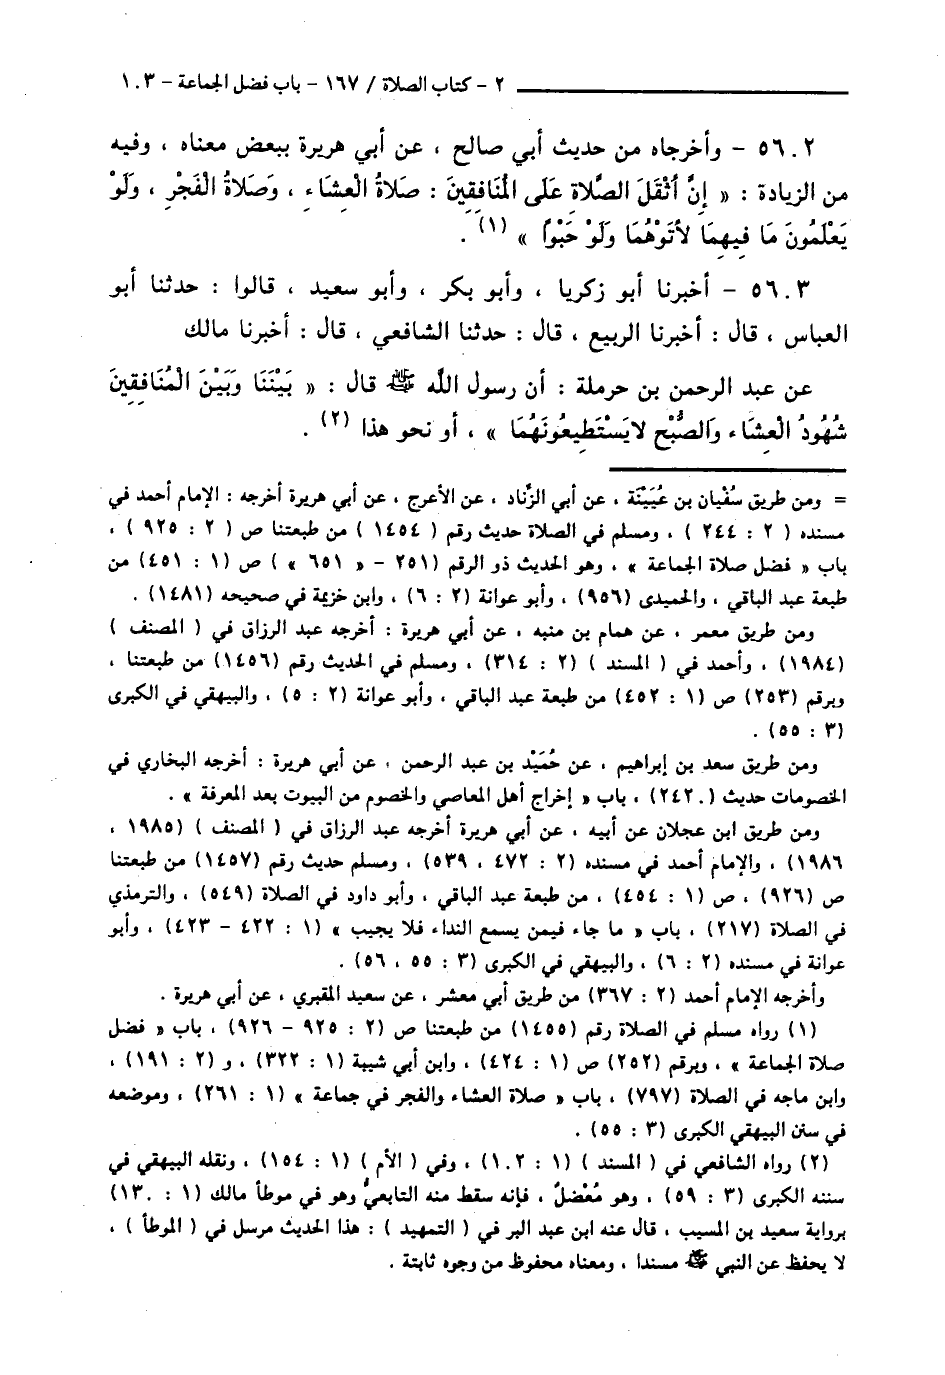 ٢ - كتاب الصلاة / ١٦٧ - باب فضل الجماعة - ١٠٣
٥٦٠٢ - وأخرجاه من حديث أبي صالح ، عن أبي هريرة ببعض معناه ، وفيه
من الزيادة : « إِنَّ أَثْقَلَ الصَّلاة عَلَى الْمُنَافِقِينَ : صَلاةُ الْعِشَاءِ ، وَصَلاةُ الْفَجْرِ ، وَلَوْ
يَعْلَمُونَ مَا فِيهِمَا لأتَوْهُمَا وَلَوْ حَبْوًا » (١) .
٥٦٠٣ - أخبرنا أبو زكريا ، وأبو بكر ، وأبو سعيد ، قالوا : حدثنا أبو
العباس ، قال : أخبرنا الربيع ، قال : حدثنا الشافعي ، قال : أخبرنا مالك
عن عبد الرحمن بن حرملة : أن رسول اللَّه ﷺ قال : « بَيْنَنَا وَبَيْنَ الْمُنَافِقِينَ
شُهُودُ الْعِشَاءِ وَالصُّبْحِ لايَسْتَطِيعُونَهُمَا » ، أو نحو هذا (٢) .
= ومن طريق سُفْيان بن عُيَيْنَة ، عن أبي الزِّناد ، عن الأعرج ، عن أبي هريرة أخرجه : الإمام أحمد في
مسنده ( ٢ : ٢٤٤ ) ، ومسلم في الصلاة حديث رقم ( ١٤٥٤ ) من طبعتنا ص ( ٢ : ٩٢٥ ) ،
باب « فضل صلاة الجماعة » ، وهو الحديث ذو الرقم (٢٥١ - « ٦٥١ » ) ص (١ : ٤٥١) من
طبعة عبد الباقي ، والحميدى (٩٥٦) ، وأبو عوانة (٢ : ٦) ، وابن خزيمة في صحيحه (١٤٨١) .
ومن طريق معمر ، عن همام بن منبه ، عن أبي هريرة : أخرجه عبد الرزاق في ( المصنف )
(١٩٨٤) ، وأحمد في ( المسند ) (٢ : ٣١٤) ، ومسلم في الحديث رقم (١٤٥٦) من طبعتنا ،
وبرقم (٢٥٣) ص (١ : ٤٥٢) من طبعة عبد الباقي ، وأبو عوانة (٢ : ٥) ، والبيهقي في الكبرى
(٣ : ٥٥) .
ومن طريق سعد بن إبراهيم ، عن حُمَيْد بن عبد الرحمن ، عن أبي هريرة : أخرجه البخاري في
الخصومات حديث (٢٤٢٠) ، باب « إخراج أهل المعاصي والخصوم من البيوت بعد المعرفة » .
ومن طريق ابن عجلان عن أبيه ، عن أبي هريرة أخرجه عبد الرزاق في ( المصنف ) (١٩٨٥ ،
١٩٨٦) ، والإمام أحمد في مسنده (٢ : ٤٧٢ ، ٥٣٩) ، ومسلم حديث رقم (١٤٥٧) من طبعتنا
ص (٩٢٦) ، ص (١ : ٤٥٤) ، من طبعة عبد الباقي ، وأبو داود في الصلاة (٥٤٩) ، والترمذي
في الصلاة (٢١٧) ، باب « ما جاء فيمن يسمع النداء فلا يجيب » (١ : ٤٢٢ - ٤٢٣) ، وأبو
عوانة في مسنده (٢ : ٦) ، والبيهقي في الكبرى (٣ : ٥٥ ، ٥٦) .
وأخرجه الإمام أحمد (٢ : ٣٦٧) من طريق أبي معشر ، عن سعيد المقبري ، عن أبي هريرة .
(١) رواه مسلم في الصلاة رقم (١٤٥٥) من طبعتنا ص (٢ : ٩٢٥ - ٩٢٦) ، باب « فضل
صلاة الجماعة » ، وبرقم (٢٥٢) ص (١ : ٤٢٤) ، وابن أبي شيبة (١ : ٣٢٢) ، و (٢ : ١٩١) ،
وابن ماجه في الصلاة (٧٩٧) ، باب « صلاة العشاء والفجر في جماعة » (١ : ٢٦١) ، وموضعه
في سنن البيهقي الكبرى (٣ : ٥٥) .
(٢) رواه الشافعي في ( المسند ) (١ : ١٠٢) ، وفي ( الأم ) (١ : ١٥٤) ، ونقله البيهقي في
سننه الكبرى (٣ : ٥٩) ، وهو مُعْضلٌ ، فإنه سقط منه التابعيُّ وهو في موطأ مالك (١ : ١٣٠)
برواية سعيد بن المسيب ، قال عنه ابن عبد البر في ( التمهيد ) : هذا الحديث مرسل في ( الموطأ ) ،
لا يحفظ عن النبي ﷺ مسندا ، ومعناه محفوظ من وجوه ثابتة .